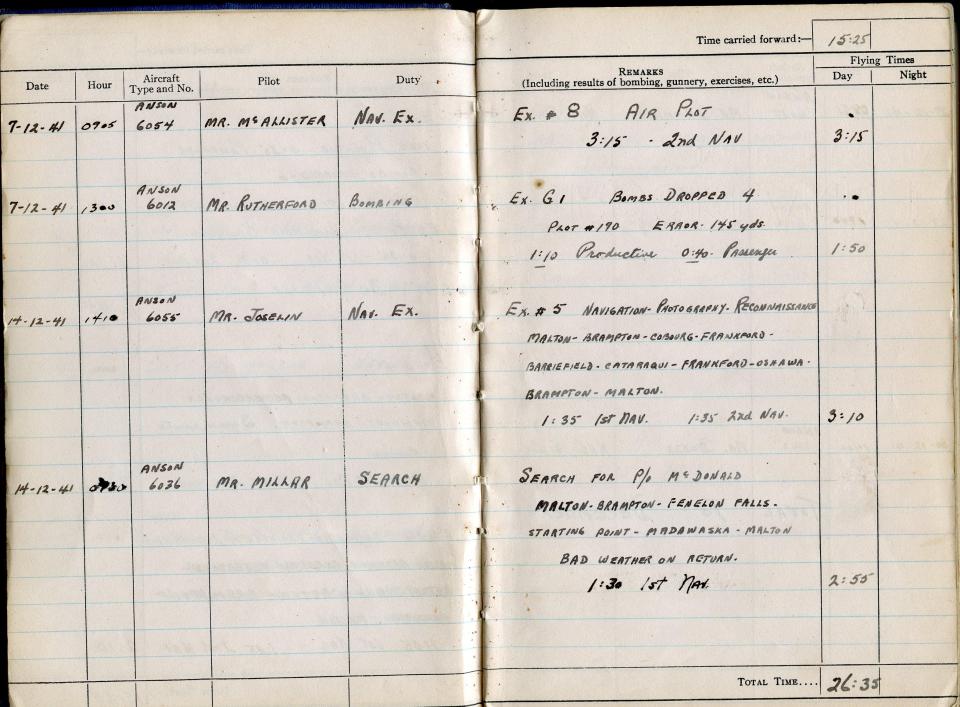 Time carried forward:— 15:25
Date Hour Aircraft Type and No. Pilot Duty
REMARKS (Including results of bombing, gunnery, exercises, etc.) Flying Times Day Night
ANSON
7-12-41 0905 6054 MR. McALLISTER NAV. EX. EX. # 8 AIR PLOT
3:15 - 2nd NAV 3:15
ANSON
7-12-41 1300 6012 MR. RUTHERFORD BOMBING EX. G1 BOMBS DROPPED 4
PLOT #190 ERROR- 145 yds.
1:10 Productive 0:40- PASSENGER 1:50
ANSON
14-12-41 1410 6055 MR. JOSELIN NAV. EX. EX. # 5 NAVIGATION-PHOTOGRAPHY-RECONNAISSANCE
MALTON-BRAMPTON-COBOURG-FRANKFORD-
BARRIEFIELD-CATARAQUI-FRANKFORD-OSHAWA-
BRAMPTON-MALTON.
1:35 1st NAV. 1:35 2nd NAV. 3:10
ANSON
14-12-41 6036 MR. MILLAR SEARCH SEARCH FOR P/O McDONALD
MALTON-BRAMPTON-FENELON FALLS.
STARTING POINT-MADAWASKA-MALTON
BAD WEATHER ON RETURN.
1:30 1st NAV. 2:55
TOTAL TIME.... 26:35